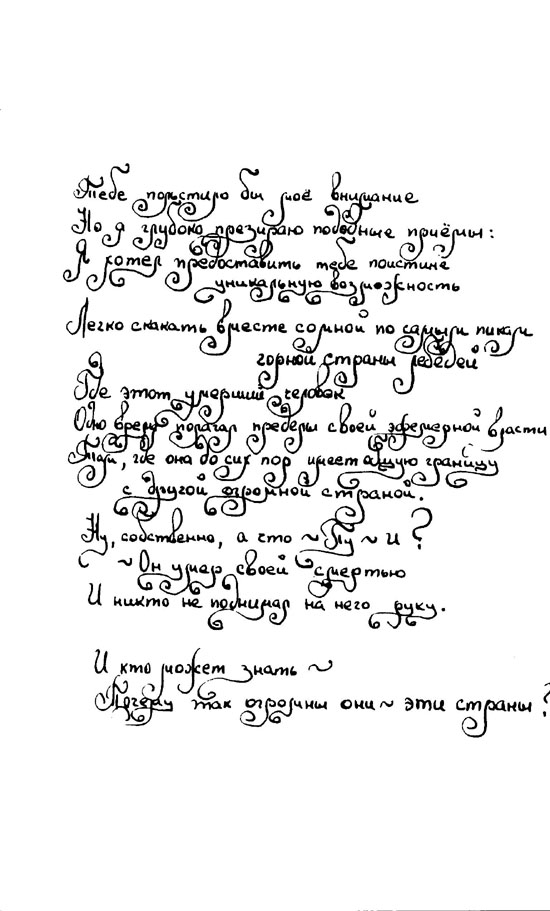 Тебе польстило бы моё внимание
Но я грубоко презираю подобные приёмы:
Я хотел предоставить тебе поистине
уникальную возможность
Легко скакать вместе со мной по самым пикам
горной страны лебедей
Где этот умерший человек
Одно время полагал пределы своей эфемерной власти
Там, где она до сих пор имеет общую границу
с другой огромной страной.
Ну, собственно, а что ~ Ну ~ и ?
~ Он умер своей смертью
И никто не поднимал на него руку.
И кто может знать ~
Почему так огромны они ~ эти страны ?